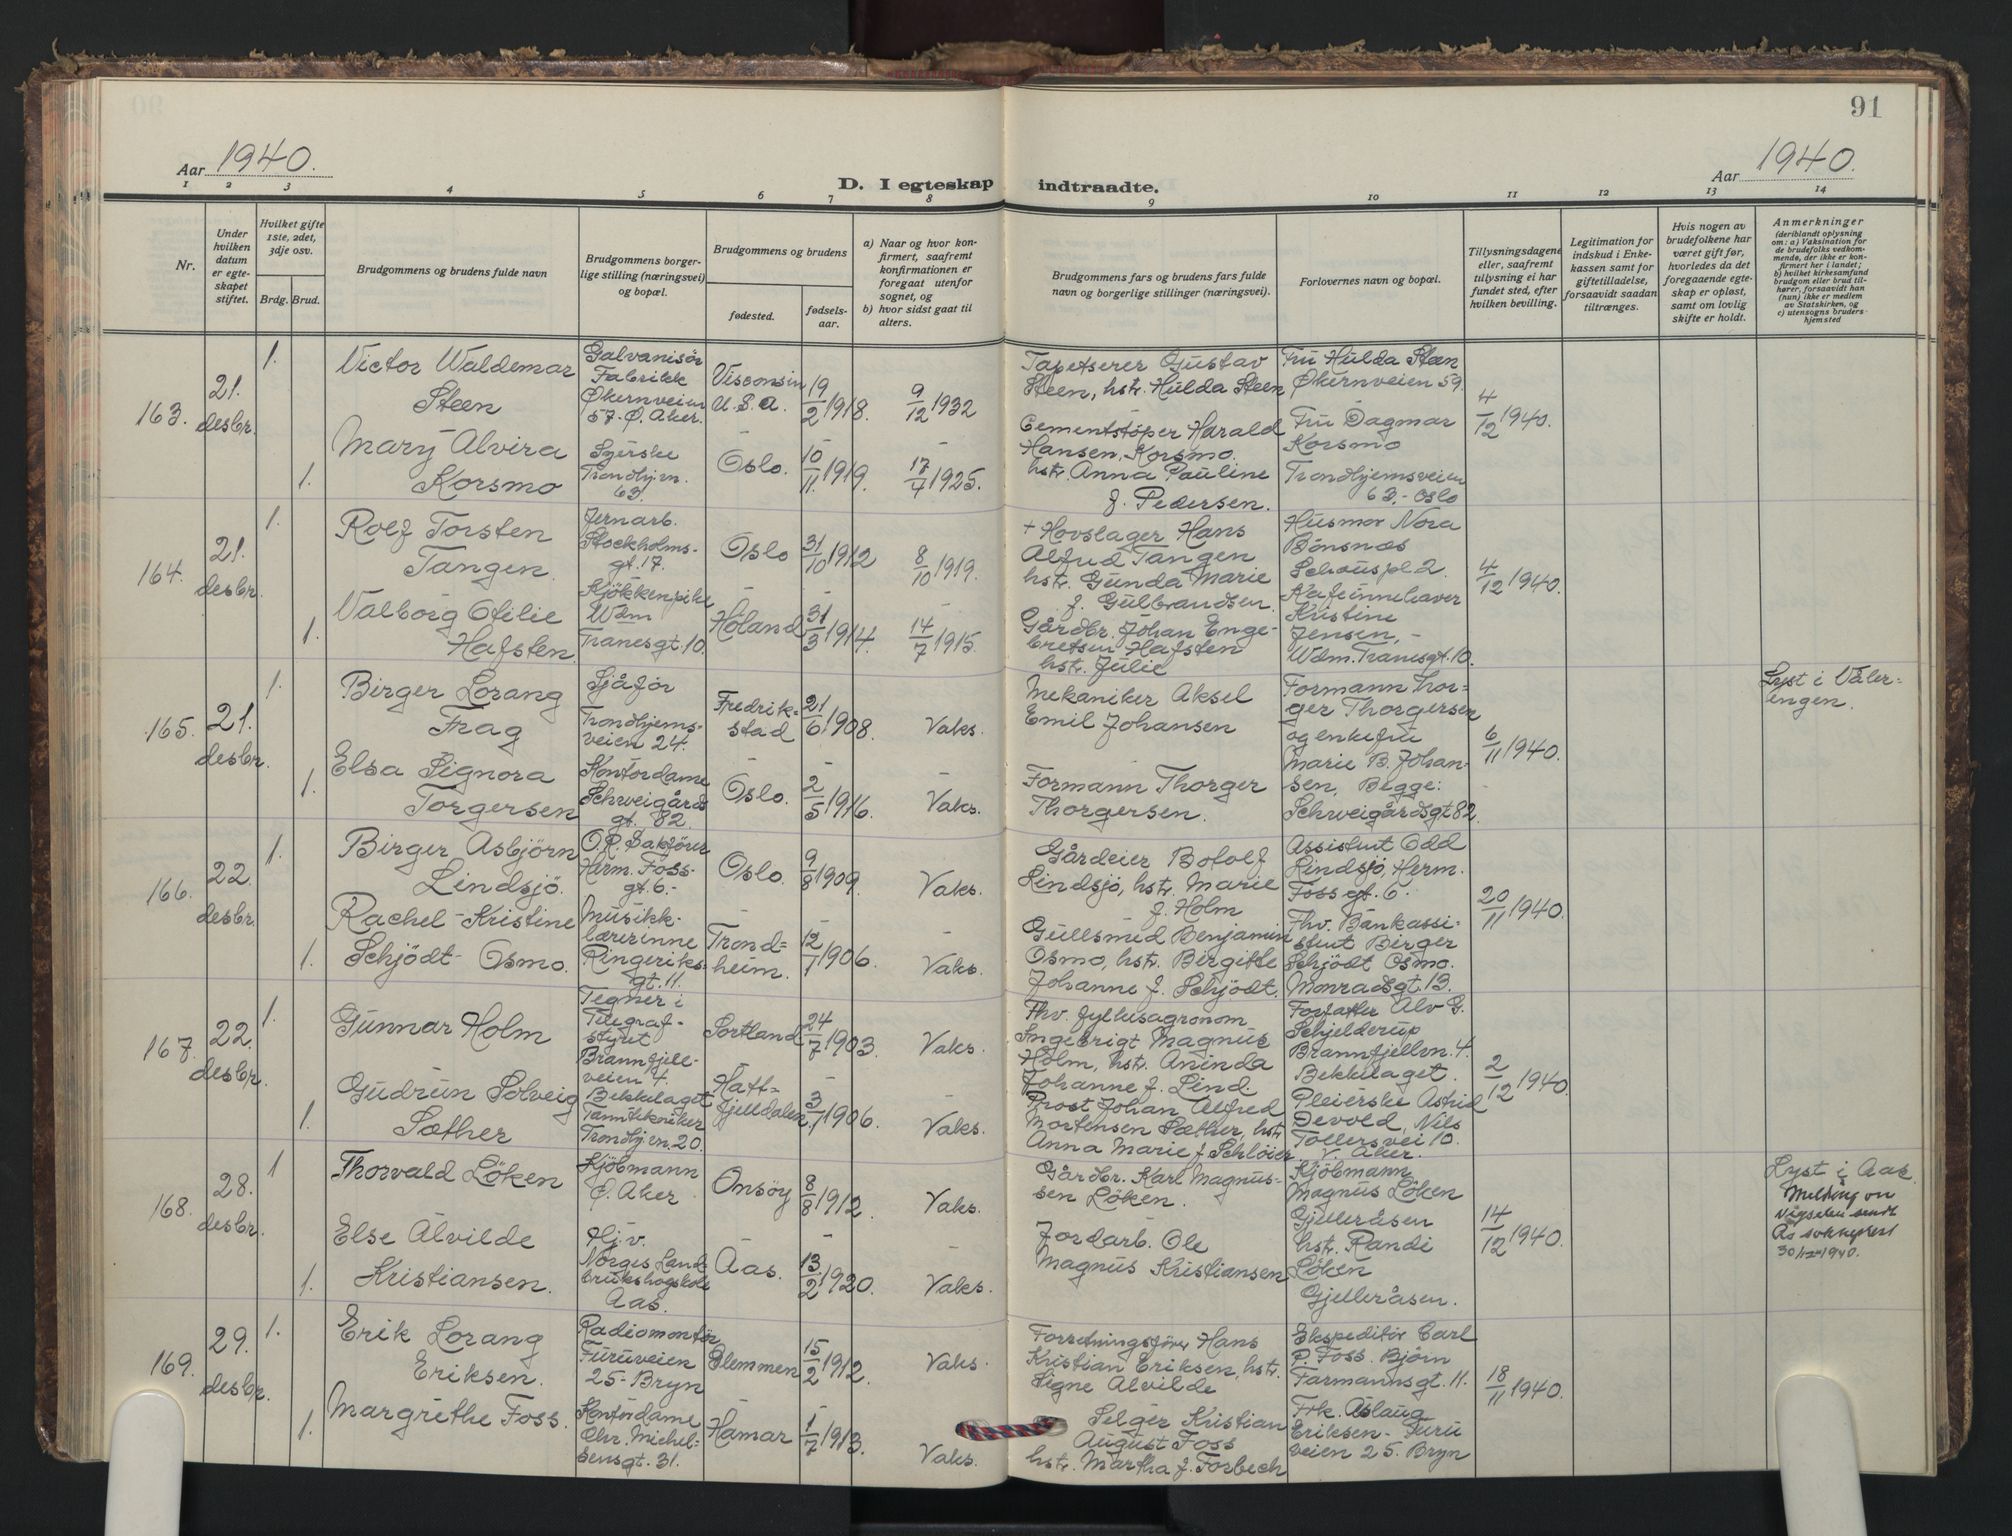 91
Aar 1940.
D. I egteskap indtraadte.
Aar 1940.
1 2 3 4 5 6 7 8 9 10 11 12 13 14
Nr.
Under hvilken datum er egteskapet stiftet.
Hvilket gifte 1ste, 2det, 3dje osv.
Brdg. Brud.
Brudgommens og brudens fulde navn
Brudgommens borgerlige stilling (næringsvei) og bopæl.
Brudgommens og brudens
fødested.
fødselsaar.
a) Naar og hvor konfirmert, saafremt konfirmationen er foregaat utenfor sognet, og
b) hvor sidst gaat til alters.
Brudgommens fars og brudens fars fulde navn og borgerlige stillinger (næringsvei).
Forlovernes navn og bopæl.
Tillysningsdagene eller, saafremt tillysning ei har fundet sted, efter hvilken bevilling.
Legitimation for indskud i Enkekassen samt for giftetilladelse, forsaavidt saadan tiltrænges.
Hvis nogen av brudefolkene har været gift før, hvorledes da det foregaaende egteskap er opløst, samt om lovlig skifte er holdt.
Anmerkninger
(deriblandt oplysning om: a) Vaksination for de brudefolks vedkommende, der ikke er konfirmert her i landet; b) hvilket kirkesamfund brudgom eller brud tilhører, forsaavidt han (hun) ikke er medlem av Statskirken, og c) utensogns bruders hjemsted
163.
21. desbr.
1.
Victor Waldemar
Steen
Galvanisør
Fabrikk
Økernveien
57. Ø. Aker.
Visconsin
U.S.A.
19/2 1918.
9/12 1932
Tapetserer Gustav
Steen, hstr. Hulda Steen
Fru Hulda Steen
Økernveien 59.
4/12 1940.
1.
Mary Alvira
Korsmo
Syerske
Trondhj.vn.
63.
Oslo.
10/11 1919.
17/4 1925.
Cementstøper Harald
Hansen, Korsmo.
hstr. Anna Pauline
f. Pedersen.
Fru Dagmar
Korsmo
Trondhjemsveien
63.- Oslo
164.
21. desbr.
1.
Rolf Torsten
Tangen.
Jernarb.
Stockholms-
gt. 17.
Oslo
31/10 1912
8/10 1919.
+ Hovslager Hans
Alfred Tangen
hstr. Gunda Marie
f. Gulbrandsen.
Husmor Nora
Bönsnæs
Schouspl. 2.
4/12 1940.
1.
Valborg Ofilie
Hafsten.
Kjökkenpike
Wdm
Tranesgt. 10.
Höland
31/3 1914.
14/7 1915.
Gårdbr. Johan Enge-
bretsen Hafsten
hstr. Julie
Kafeinnehaver
Kristine
Jensen, -
Wdm. Tranesgt. 10.
165.
21. desbr.
1.
Birger Lorang
Frag
Sjåfør
Trondhjems-
veien 24.
Fredrik-
stad
21/6 1908.
Vaks.
Mekaniker Aksel
Emil Johansen
Formann Thor-
ger Thorgersen
og enkefru
Marie B. Johan-
sen, Begge:
Schweigårdsgt 82.
6/11 1940.
Lyst i Våler-
engen.
1.
Elsa Signora
Torgersen
Kontordame
Schweigårds
gt. 82.
Oslo.
2/5 1916.
Vaks.
Formann Thorger
Thorgersen.
166.
22. desbr.
1.
Birger Asbjörn
Lindsjö.
O.R. Sakfører
Herm. Foss-
gt. 6.-
Oslo.
9/8 1909.
Vaks.
Gårdeier Botolf
Lindsjö, hstr. Marie
f. Holm
Assistent Odd
Lindsjö, Herm.
Foss gt. 6.
20/11 1940.
1.
Rachel-Kristine
Schjödt-Osmo.
Musikk-
lærerinne
Ringeriks-
gt. 11.
Trond-
heim.
12/7 1906.
Vaks.
Gullsmed Benjamin
Osmo, hstr. Birgitte
Johanne f. Schjödt.
Fhv. Bankassi-
stent Birger
Schjödt Osmo.
Monradsgt. 13.
167.
22. desbr.
1.
Gunnar Holm
Tegner i
Telegraf-
styret
Brannfjell-
veien 4.
Bekkelaget
Sortland
24/7 1903.
Vaks.
Fhv. fylkesagronom
Ingebrigt Magnus
Holm, hstr. Aninda
Johanne f. Lind.
Forfatter Alv G.
Schjelderup
Brannfjellvn. 4.
Bekkelaget.
2/12 1940.
1.
Gudrun Solveig
Sæther
Tanntekniker
Trondhj.vn. 20.
Hatt-
fjelldalen.
3/7 1906.
Vaks.
Prost Johan Alfred
Mortensen Sæther, hstr.
Anna Marie f. Schlöier
Pleierske Astrid
Devold, Nils
Tollersvei 10.
V. Aker.
168.
28. desbr.
1
Thorvald Löken
Kjöbmann
Ø. Aker
Onsöy
8/8 1912.
Vaks.
Gårdbr. Karl Magnus-
sen Löken.
Kjöbmann
Magnus Löken
Gjelleråsen
hstr. Randi
Löken
Gjelleråsen.
14/12 1940.
Lyst i Aas
Melding om
vigselen sendt
Ås sokneprest
30/12 1940.
1.
Else Alvilde
Kristiansen.
Hj.v.
Norges Land-
brukshögskole
Aas.
Aas.
13/2 1920.
Vaks.
Jordarb. Ole
Magnus Kristiansen
169.
29. desbr.
1.
Erik Lorang
Eriksen.
Radiomontör
Furuveien
25- Bryn
Glemmen
15/2 1912.
Vaks.
Forretningsfører Hans
Kristian Eriksen, hstr.
Signe Alvilde
Ekspeditör Carl
P. Foss. Björn
Farmannsgt. 11.
18/11 1940.
1.
Margrethe Foss.
Kontordame
Chr. Michel-
sensgt. 31.
Hamar
1/7 1913.
Vaks.
Selger Kristian
August Foss
hstr. Martha f. Forbech
Frk. Aslaug
Eriksen- Furu
veien 25. Bryn